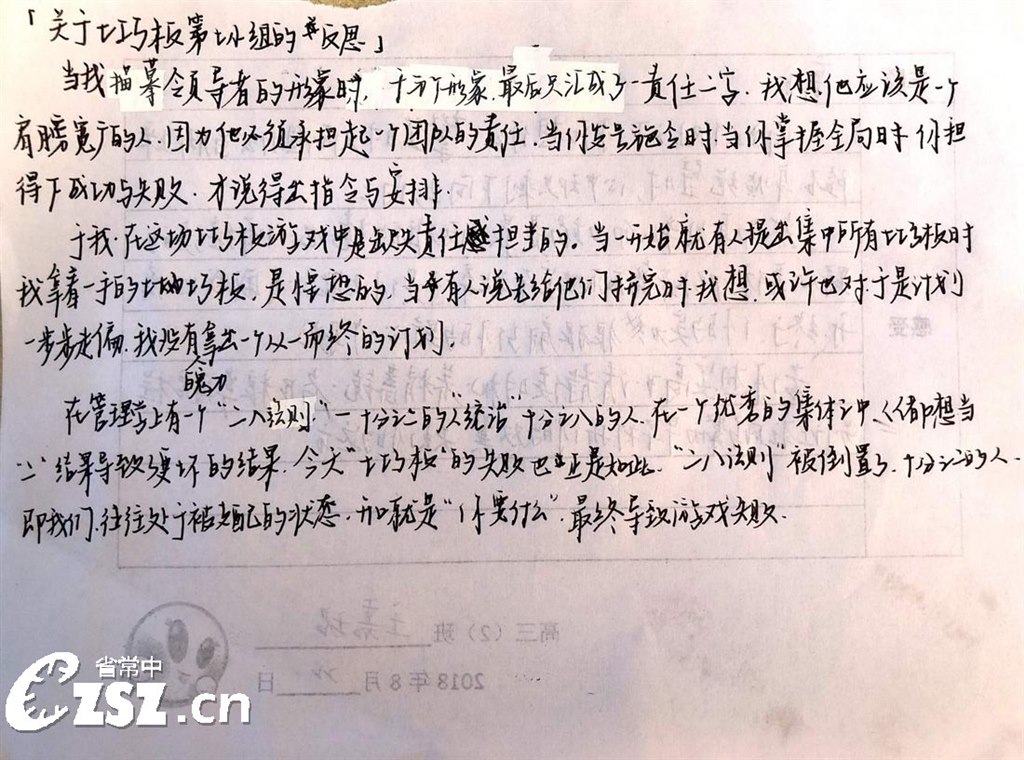 「关于七巧板第七小组的反思」
当我描摹领导者的形象时，十万个形象，最后只汇成了一责任二字。我想，他应该是一个
肩膀宽广的人，因为他必须承担起一个团队的责任，当你发号施令时，当你掌握全局时，你担
得下成功与失败，才说得出指令与安排。
于我，在这场七巧板游戏中是缺失责任感担当的。当一开始就有人提出集中所有七巧板时
我拿着一手的七巧板，是怪想的，当有人说先给他们拼完时，我想，或许也对于是计划
一步步走偏，我没有拿出一个从一而终的计划。
的魄力
在管理学上有一个"二八法则"一十分之二的人"统治"十分之八的人，在一个优秀的集体之中，人人都想当
"二"结果导致更坏的结果。今天"七巧板"的失败也正是如此。"二八法则"被倒置了，十分之二的人，
即我们，往往处于被支配的状态，那就是"你要什么"，最终导致游戏失败。
高三（2）班
2018年8月 日
感受
省常中
CZSZ.cn